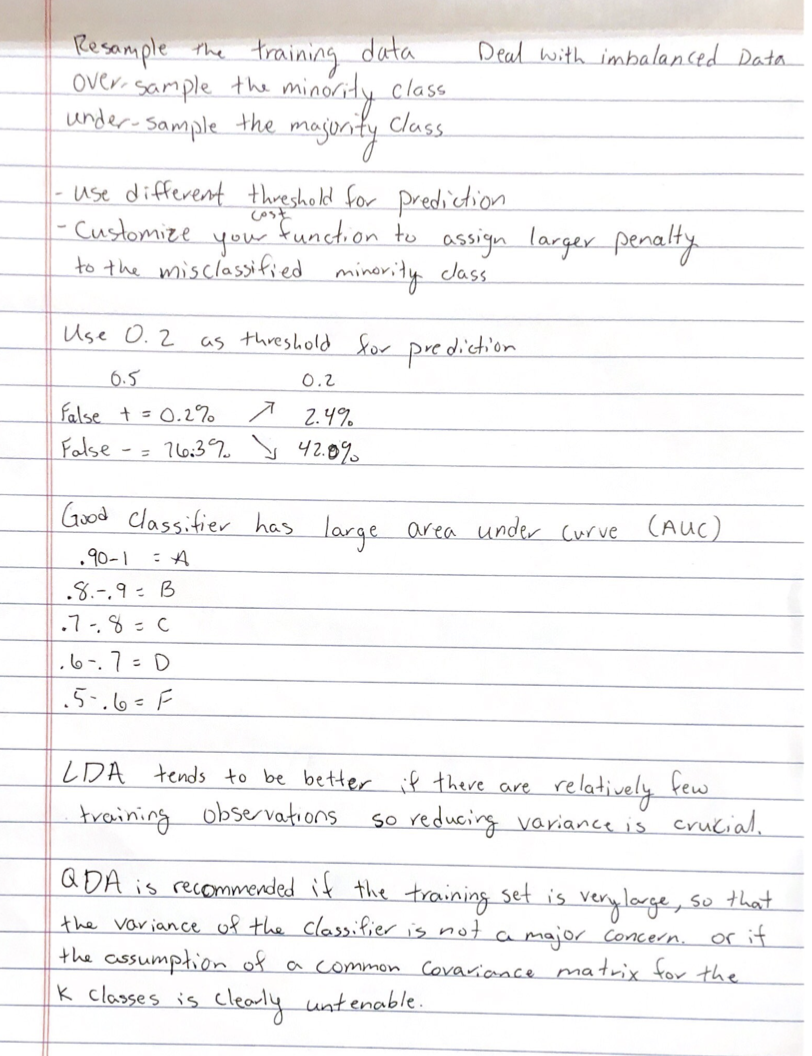 Resample the training data    Deal with imbalanced Data
over-sample the minority class
under-sample the majority class
- use different threshold for prediction
cost
- Customize your function to assign larger penalty
to the misclassified minority class
Use 0.2 as threshold for prediction
0.5    0.2
False + = 0.2% ↗ 2.4%
False - = 76.3% ↘ 42.0%
Good classifier has large area under curve (AUC)
.90-1 = A
.8-.9 = B
.7-.8 = C
.6-.7 = D
.5-.6 = F
LDA tends to be better if there are relatively few
training observations so reducing variance is crucial.
QDA is recommended if the training set is very large, so that
the variance of the classifier is not a major concern. or if
the assumption of a common covariance matrix for the
K classes is clearly untenable.